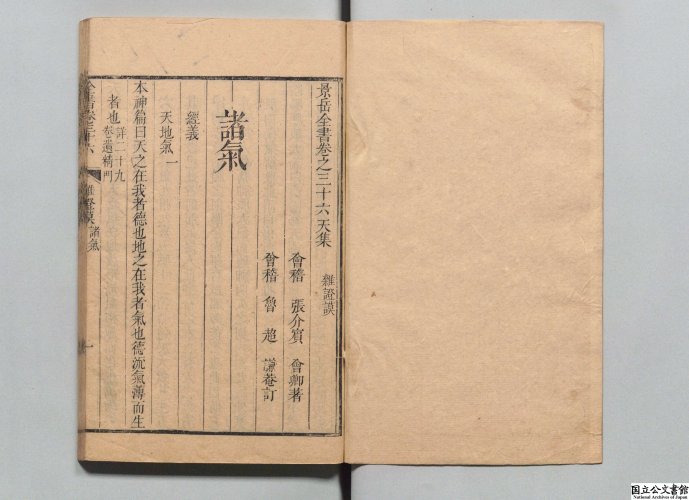 景岳全書卷之三十六天集 雜證謨
會稽 張介賓 會卿著
會稽 魯超 謙菴訂
諸氣
經義
天地氣一
本神篇曰天之在我者德也地之在我者氣也德流氣薄而生
者也 詳二十九
卷遺精門
全書卷三十六 雜證謨 諸氣 一
国立公文書館
National Archives of Japan